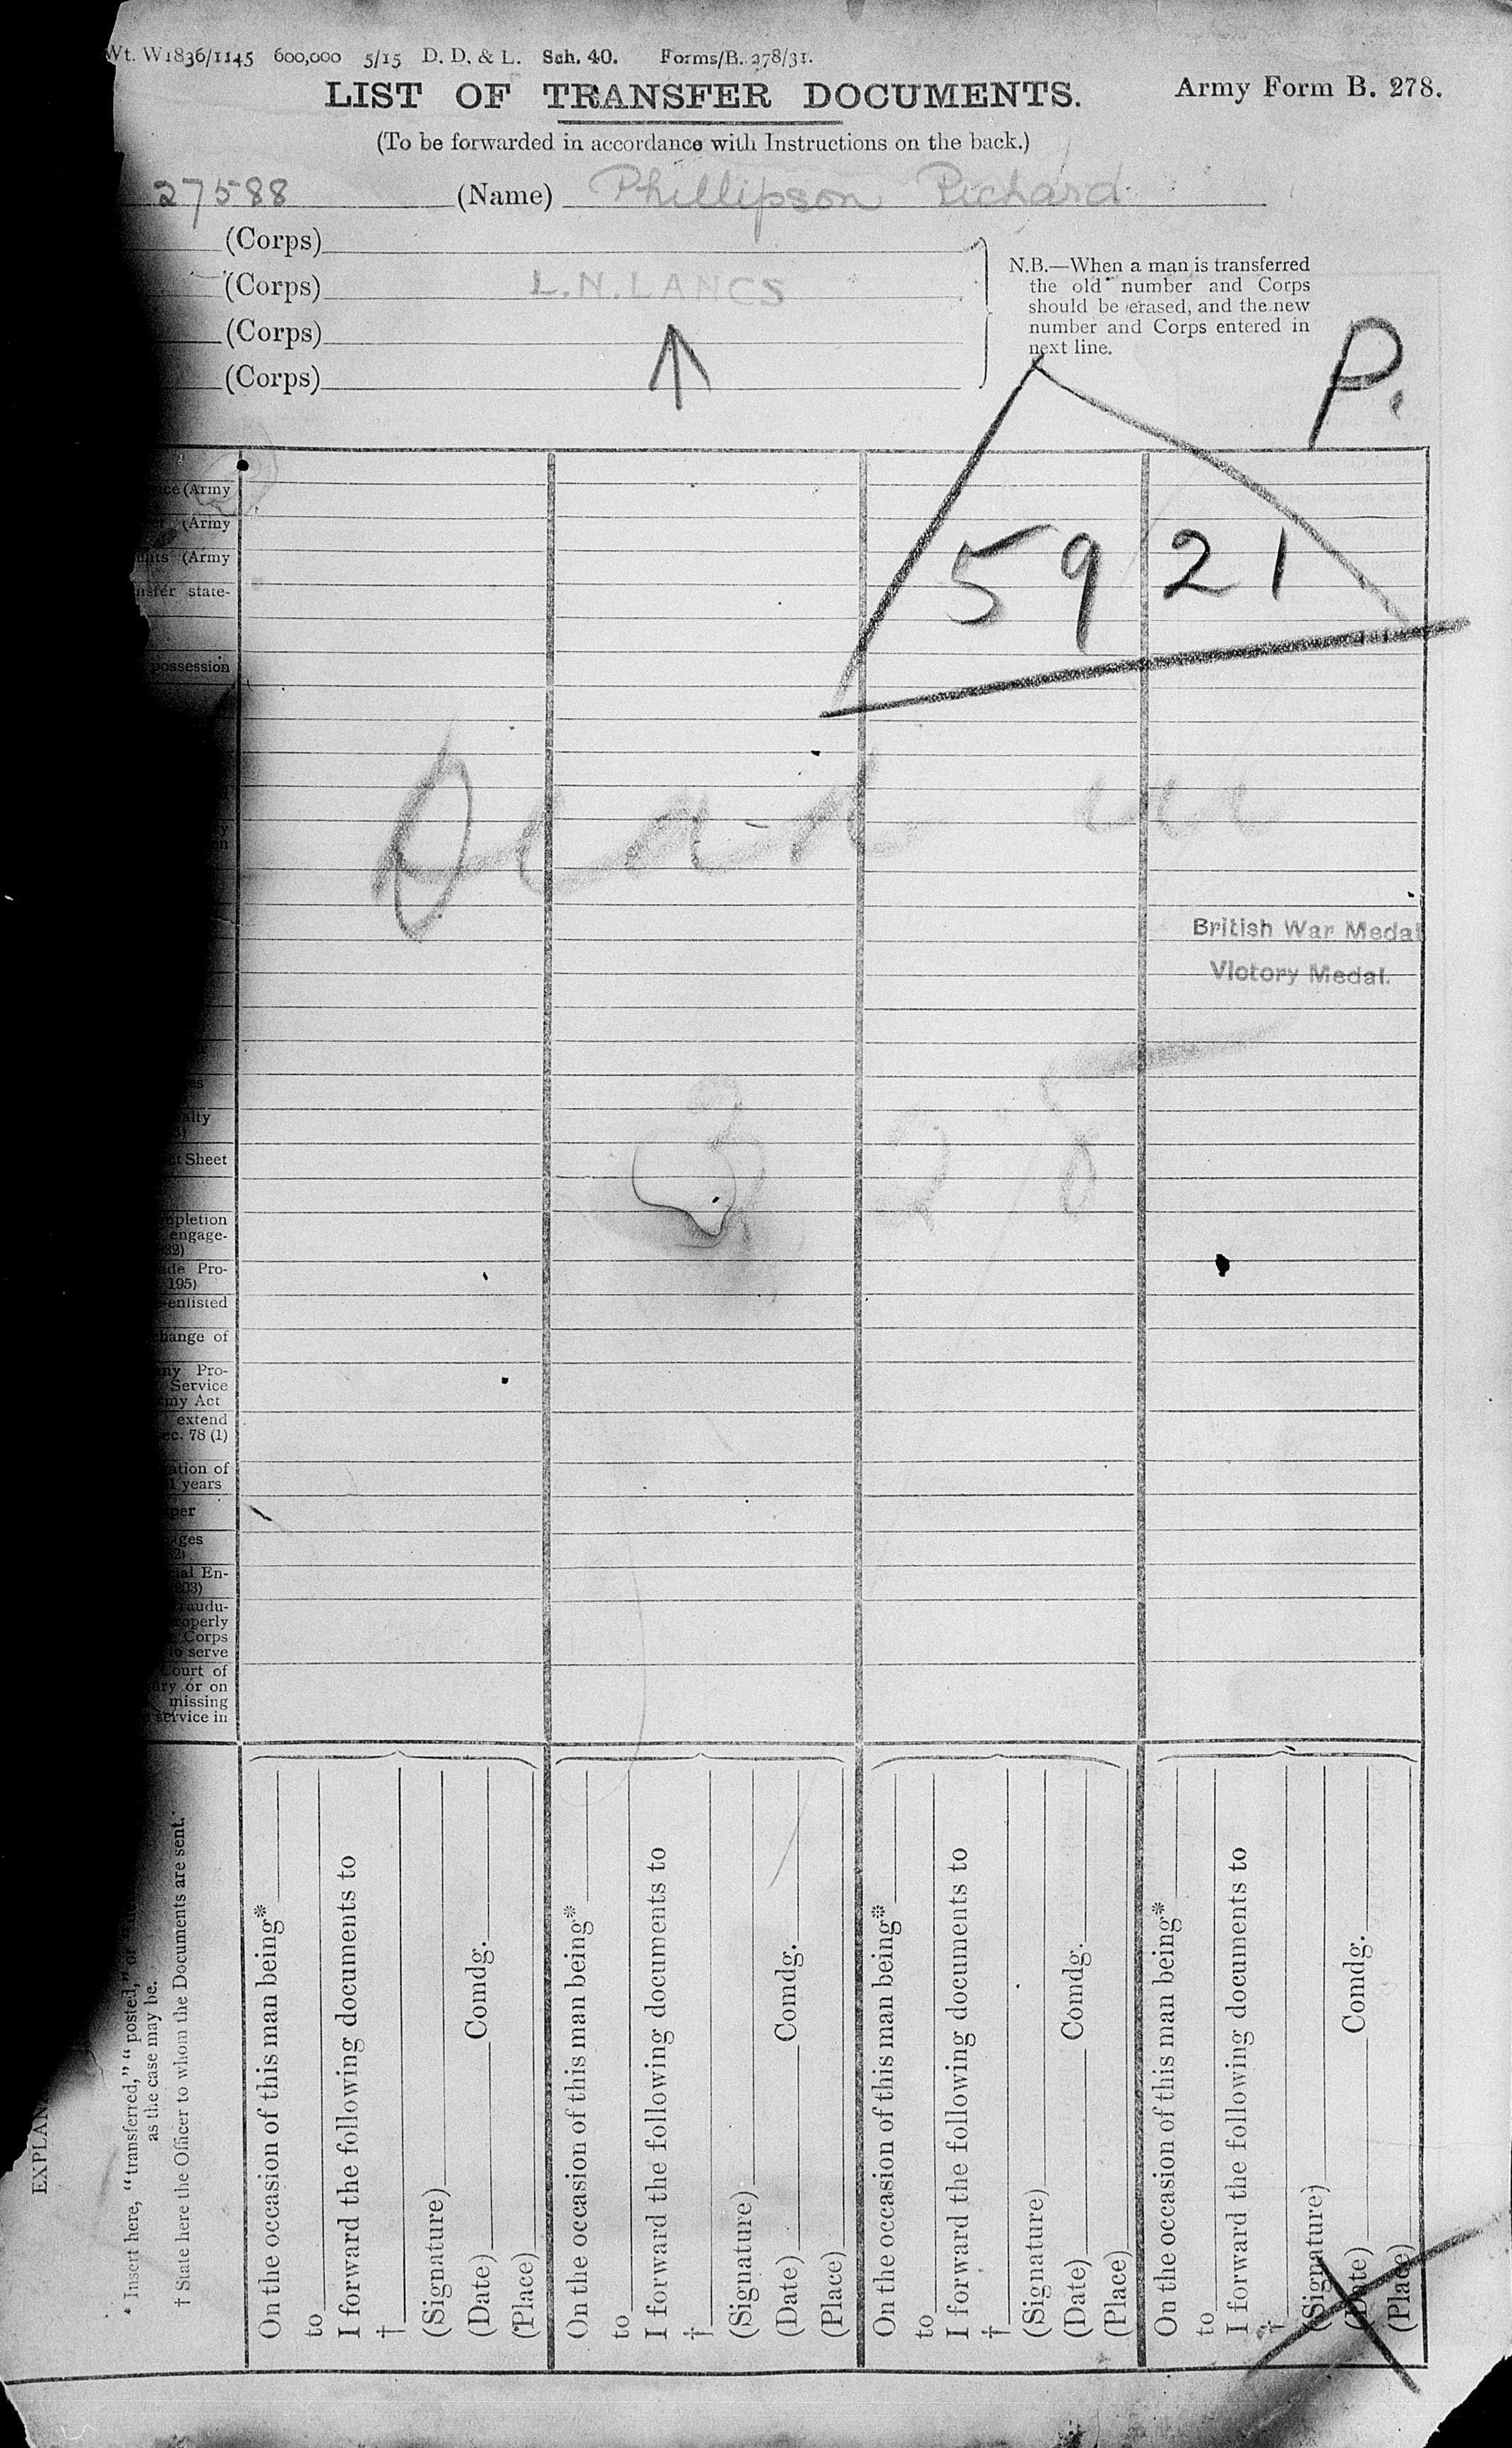 Wt. W1836/1145 600,000 5/15 D. D. & L. Sch. 40. Forms/B. 278/31.
LIST OF TRANSFER DOCUMENTS.
Army Form B. 278.
(To be forwarded in accordance with Instructions on the back.)
27588 (Name) Phillipson Richard
(Corps)
(Corps) L.N.LANCS
(Corps)
(Corps)
N.B.—When a man is transferred
the old number and Corps
should be erased, and the new
number and Corps entered in
next line.
P.
5921
(Army
(Army
(Army
state-
possession
Dead
British War Medal
Victory Medal.
Sheet
engage-
Pro-
195)
enlisted
of
Pro-
Service
Act
extend
78 (1)
of
years
En-
Corps
to serve
Court of
or on
missing
service in
EXPLAN
* Insert here, “transferred,” “posted,” or
as the case may be.
† State here the Officer to whom the Documents are sent.
On the occasion of this man being*
to
I forward the following documents to
†
(Signature)
Comdg.
(Date)
(Place)
On the occasion of this man being*
to
I forward the following documents to
†
(Signature)
Comdg.
(Date)
(Place)
On the occasion of this man being*
to
I forward the following documents to
†
(Signature)
Comdg.
(Date)
(Place)
On the occasion of this man being*
to
I forward the following documents to
†
(Signature)
Comdg.
(Date)
(Place)